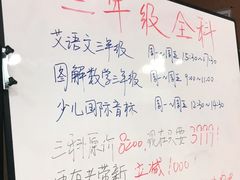 三年级全科
艾语文三年级 周一~周五 15:30~17:30
图解数学三年级 周一~周五 9:00~11:00
少儿国际音标 周一~周五 12:30~14:30
三科原价8200,现在只要3999!
还有老带新 立减1000!